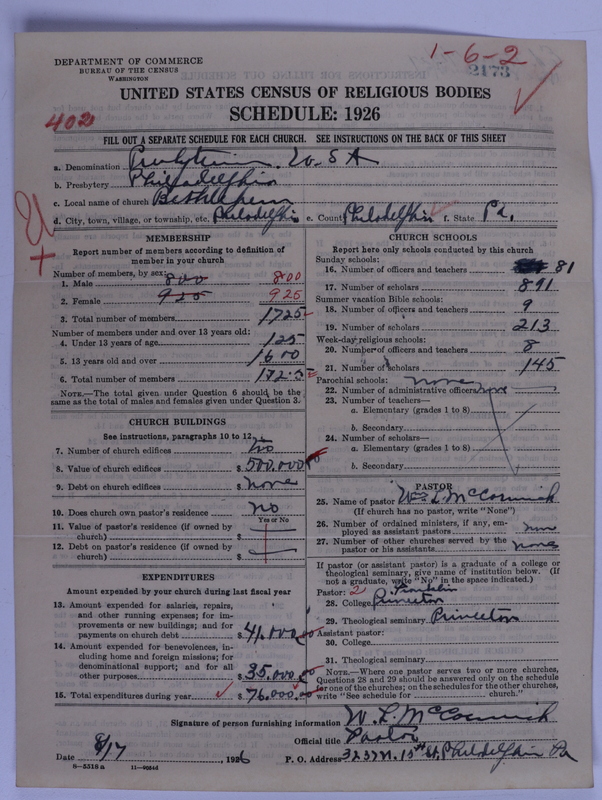 1-6-2
2173
DEPARTMENT OF COMMERCE
BUREAU OF THE CENSUS
WASHINGTON
UNITED STATES CENSUS OF RELIGIOUS BODIES
SCHEDULE: 1926
402
FILL OUT A SEPARATE SCHEDULE FOR EACH CHURCH. SEE INSTRUCTIONS ON THE BACK OF THIS SHEET
a. Denomination Presbyterian U.S.A
b. Presbytery Philadelphia
c. Local name of church
d. City, town, village, or township, etc. Philadelphia e. County Philadelphia f. State Pa.
MEMBERSHIP
Report number of members according to definition of
member in your church
Number of members, by sex:
1. Male 800 800
2. Female 925 925
3. Total number of members 1725
Number of members under and over 13 years old:
4. Under 13 years of age 125
5. 13 years old and over 1600
6. Total number of members 1725
NOTE.—The total given under Question 6 should be the
same as the total of males and females given under Question 3.
CHURCH BUILDINGS
See instructions, paragraphs 10 to 12
7. Number of church edifices
8. Value of church edifices $ 500.000
9. Debt on church edifices $ none
10. Does church own pastor's residence no
Yes or No
11. Value of pastor's residence (if owned by
church) $
12. Debt on pastor's residence (if owned by
church) $
EXPENDITURES
Amount expended by your church during last fiscal year
13. Amount expended for salaries, repairs,
and other running expenses; for im-
provements or new buildings; and for
payments on church debt $ 41.000
14. Amount expended for benevolences, in-
cluding home and foreign missions; for
denominational support; and for all
other purposes $ 35.000
15. Total expenditures during year $ 76.000.00
CHURCH SCHOOLS
Report here only schools conducted by this church
Sunday schools:
16. Number of officers and teachers 81
17. Number of scholars 891
Summer vacation Bible schools:
18. Number of officers and teachers 9
19. Number of scholars 213
Week-day religious schools:
20. Number of officers and teachers 8
21. Number of scholars 145
Parochial schools: none
22. Number of administrative officers none
23. Number of teachers—
a. Elementary (grades 1 to 8)
b. Secondary
24. Number of scholars—
a. Elementary (grades 1 to 8)
b. Secondary
PASTOR
25. Name of pastor Wm L. McCormick
(If church has no pastor, write "None")
26. Number of ordained ministers, if any, em-
ployed as assistant pastors none
27. Number of other churches served by the
pastor or his assistants none
If pastor (or assistant pastor) is a graduate of a college or
theological seminary, give name of institution below. (If
not a graduate, write "No" in the space indicated.)
Pastor: 2 Franklin
28. College Princeton
29. Theological seminary Princeton
Assistant pastor:
30. College
31. Theological seminary
NOTE.—Where one pastor serves two or more churches,
Questions 28 and 29 should be answered only on the schedule
for one of the churches; on the schedules for the other churches,
write "See schedule for church."
Signature of person furnishing information W. L. McCormick
Official title Pastor
Date 8/17, 1926 P. O. Address 3237 N. 15th St, Philadelphia Pa
8—5318 a